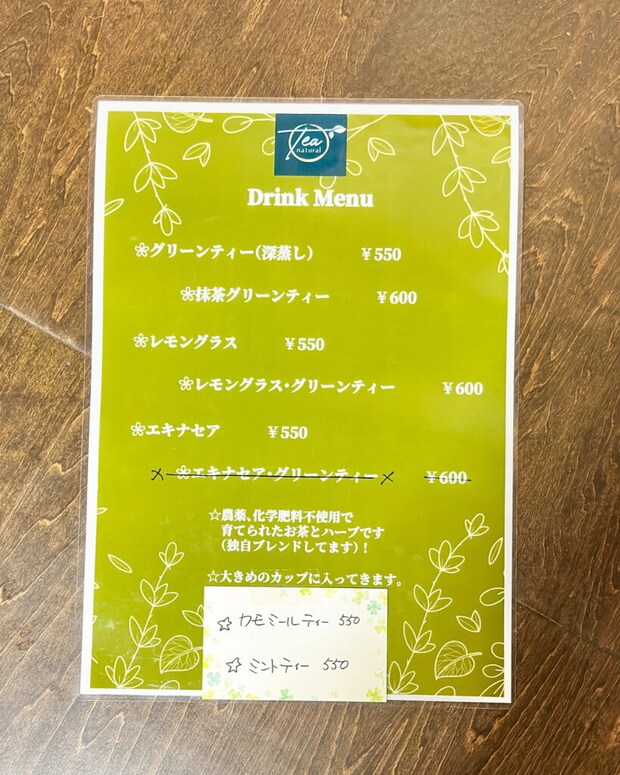 Tea
natural
Drink Menu
❀グリーンティー(深蒸し) ￥550
❀抹茶グリーンティー ￥600
❀レモングラス ￥550
❀レモングラス・グリーンティー ￥600
❀エキナセア ￥550
×❀エキナセア・グリーンティー× ￥600
☆農薬、化学肥料不使用で
育てられたお茶とハーブです
(独自ブレンドしてます)!
☆大きめのカップに入ってきます。
☆カモミールティー 550
☆ミントティー 550